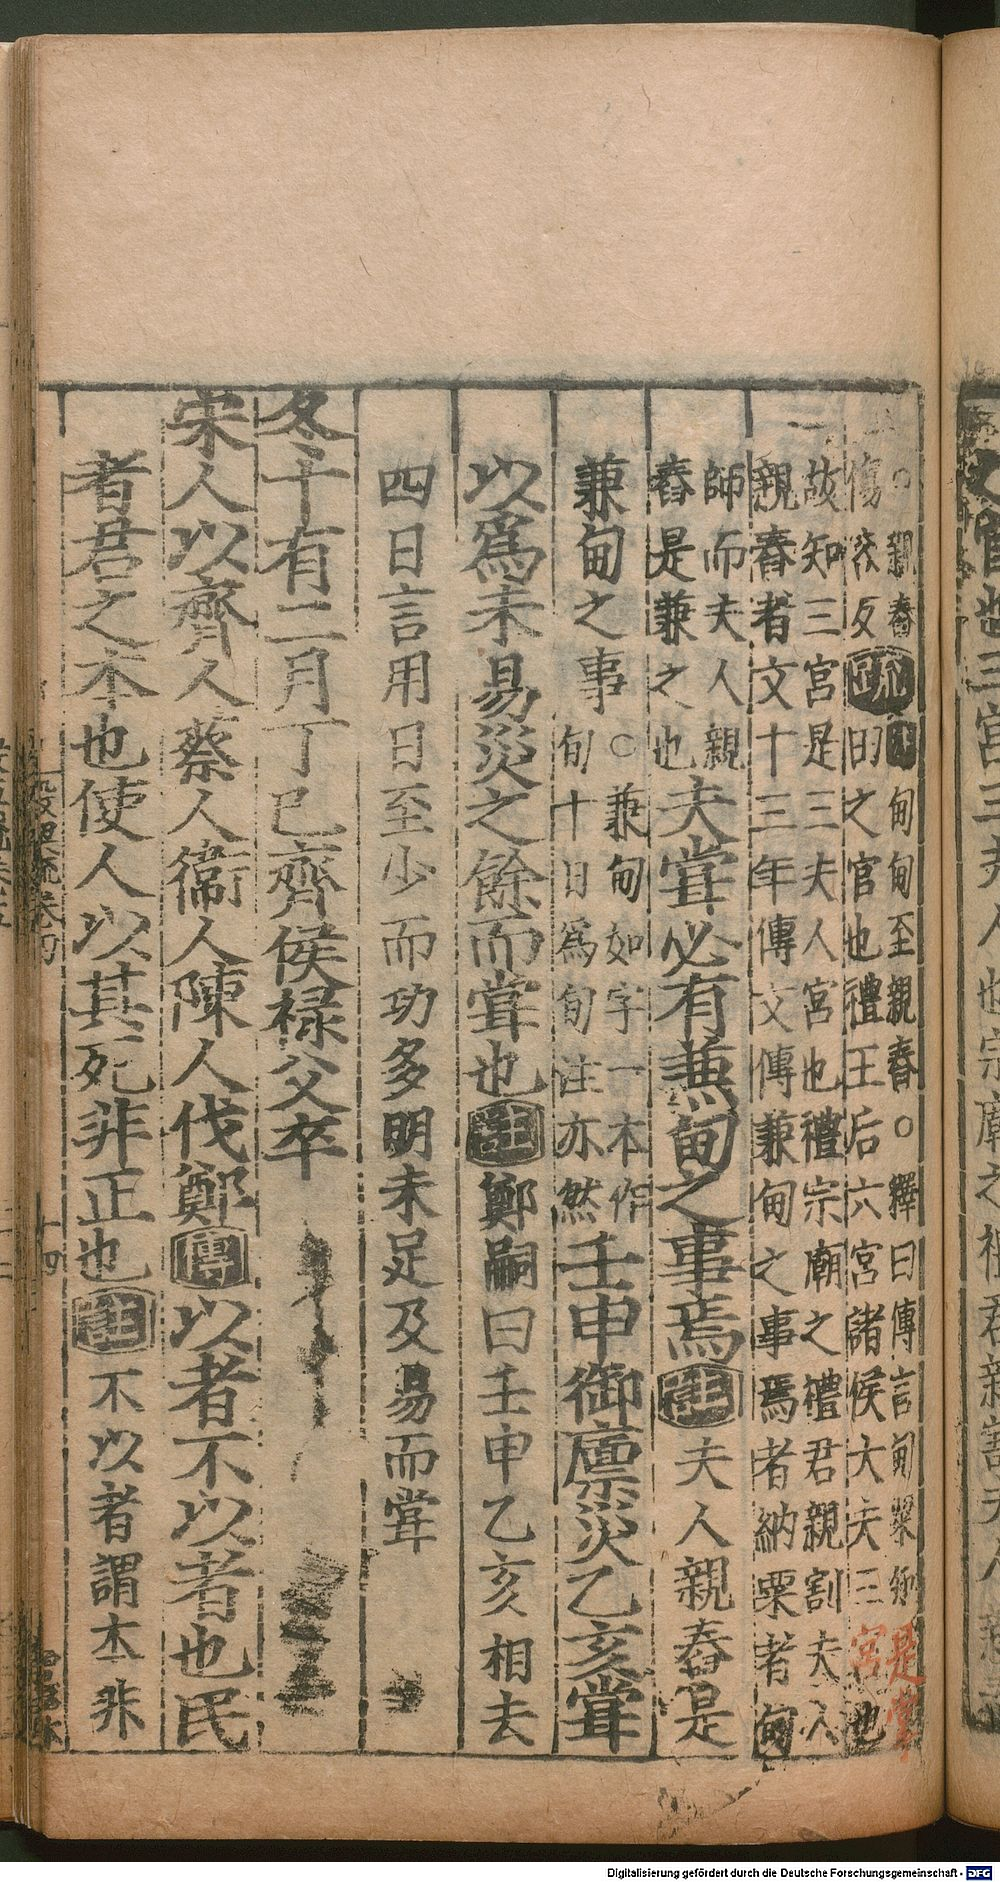 ○親舂
傷容反疏甸甸至親舂○釋曰傳言甸粟知是掌
甸之官也禮王后六宮諸侯大夫三宮也
故知三宮是三夫人宮也禮宗廟之禮君親割夫人
親舂者文十三年傳文傳兼甸之事焉者納粟者甸
師而夫人親
舂是兼之也夫甞必有兼甸之事焉註夫人親舂是
兼甸之事○兼甸如字一本作
旬十日爲旬注亦然壬申御廩災乙亥甞
以爲未易災之餘而甞也註鄭嗣曰壬申乙亥相去
四日言用日至少而功多明未足及易而甞
冬十有二月丁巳齊侯祿父卒
宋人以齊人蔡人衞人陳人伐鄭傳以者不以者也民
者君之本也使人以其死非正也註不以者謂本非
Digitalisierung gefördert durch die Deutsche Forschungsgemeinschaft - DFG